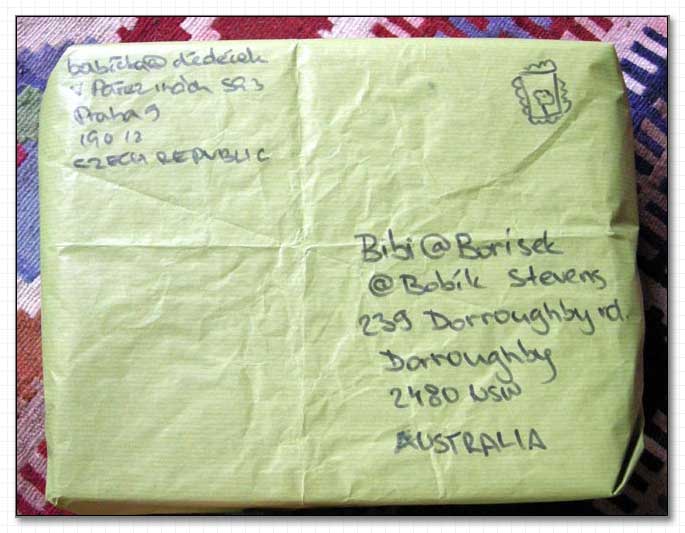 babička@dědeček
V Pařezinách 593
Praha 9
190 12
CZECH REPUBLIC
Bibi@Borisek
@Bobík Stevens
239 Dorroughby rd.
Dorroughby
2480 NSW
AUSTRALIA